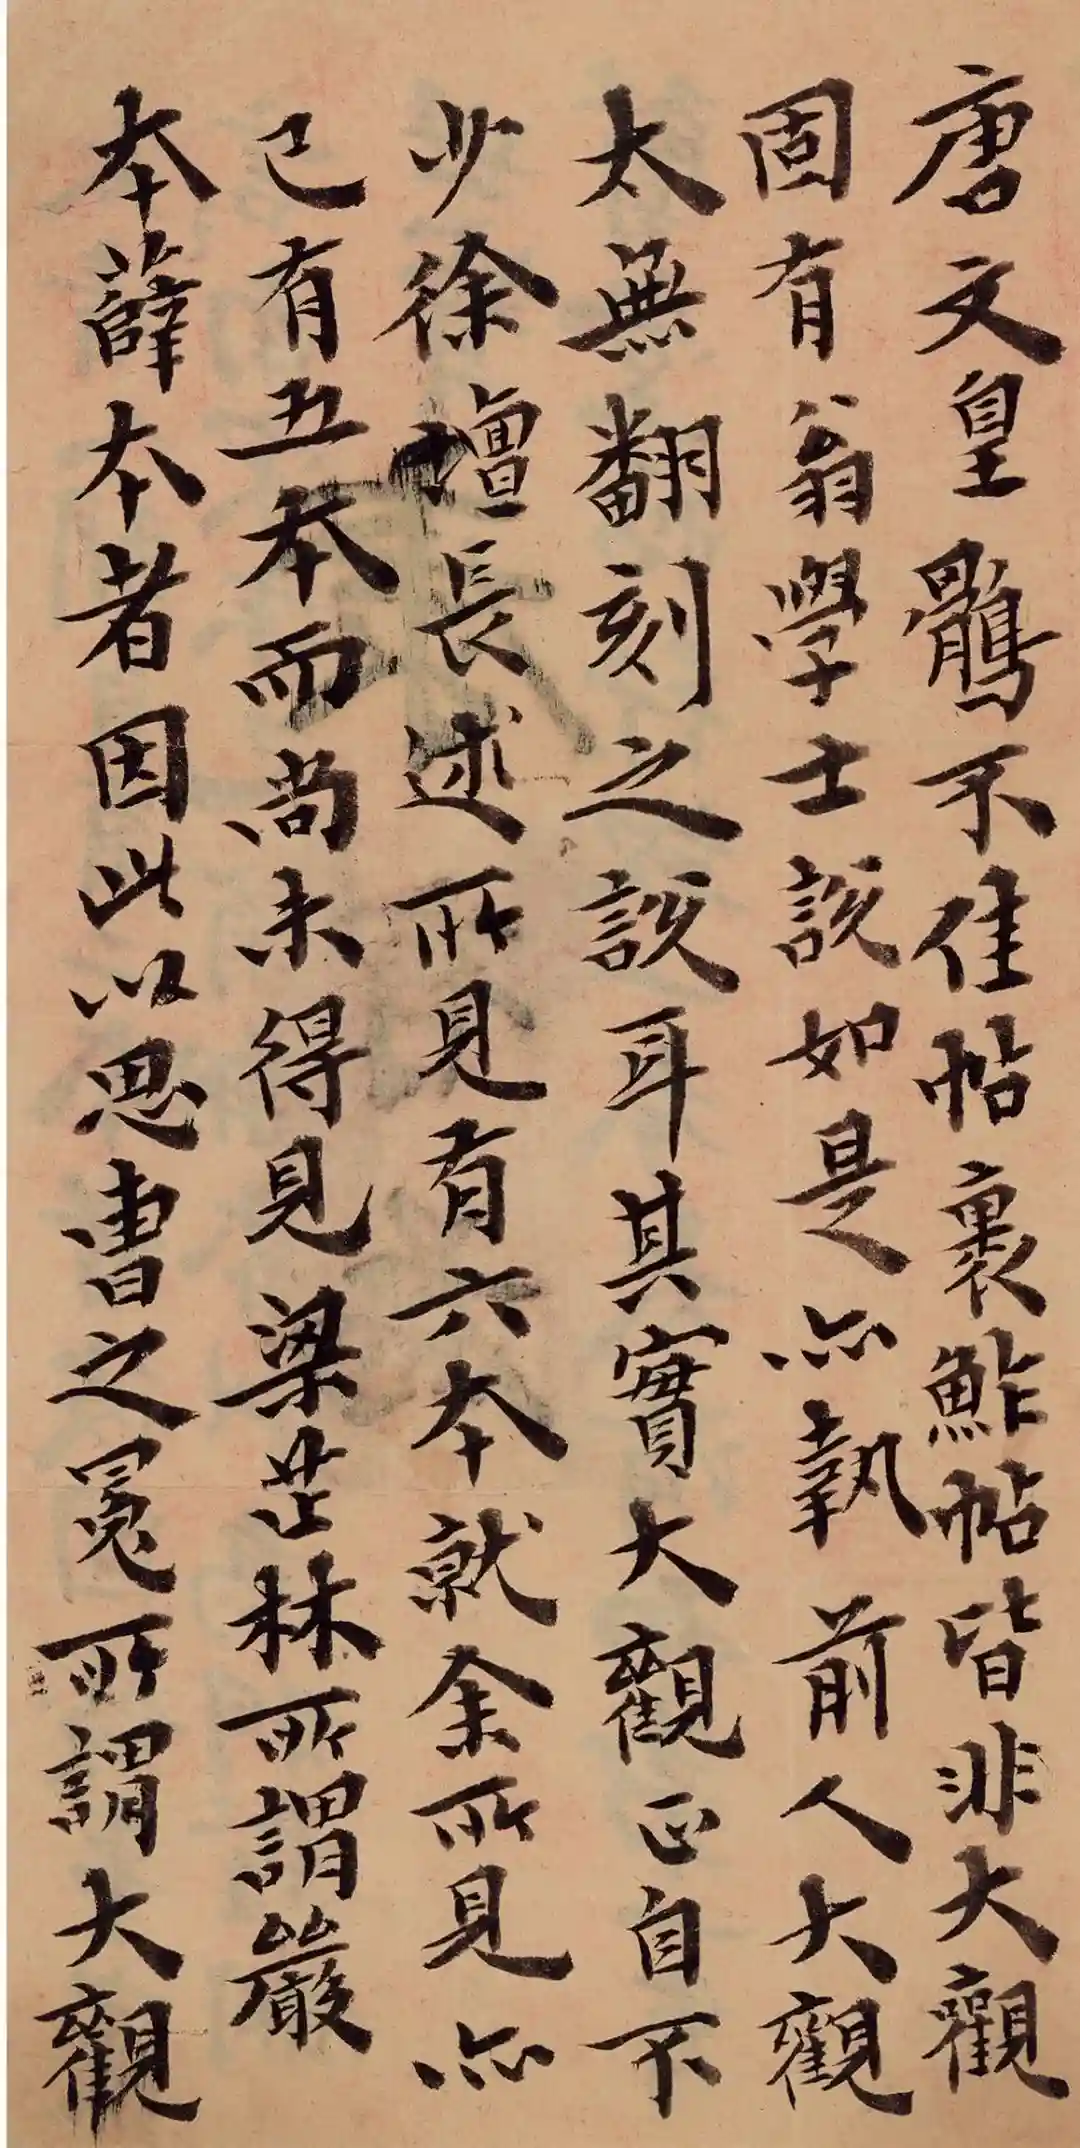 唐文皇鶻不佳帖裹鮓帖皆非大觀
固有翁學士說如是亦執前人大觀
太無翻刻之說耳其實大觀正自不
少徐壇長述所見有六本就余所見亦
已有五本而尚未得見梁茝林所謂嚴
本薛本者因此以思書之冤所謂大觀